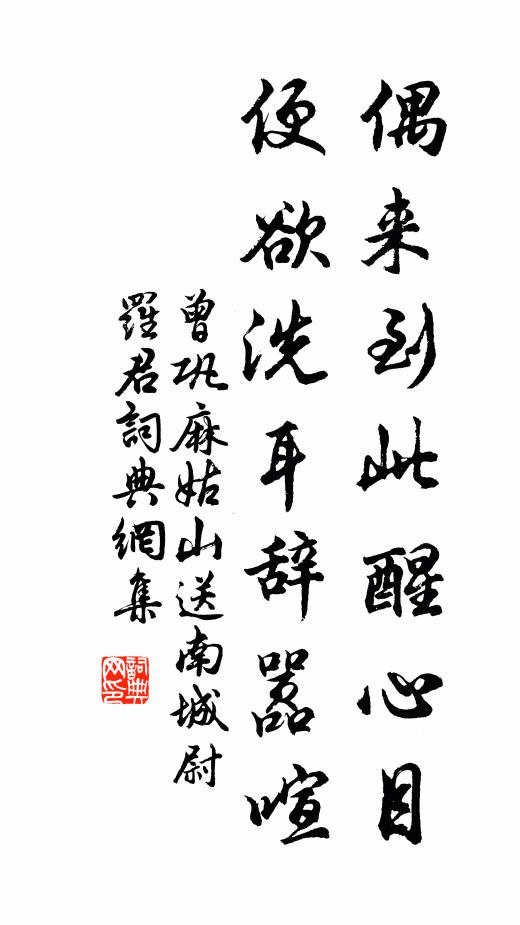 偶来到此醒心目
便欲洗耳辞嚣喧
曾巩麻姑山送南城尉
羅君詞典網集
詞典网印